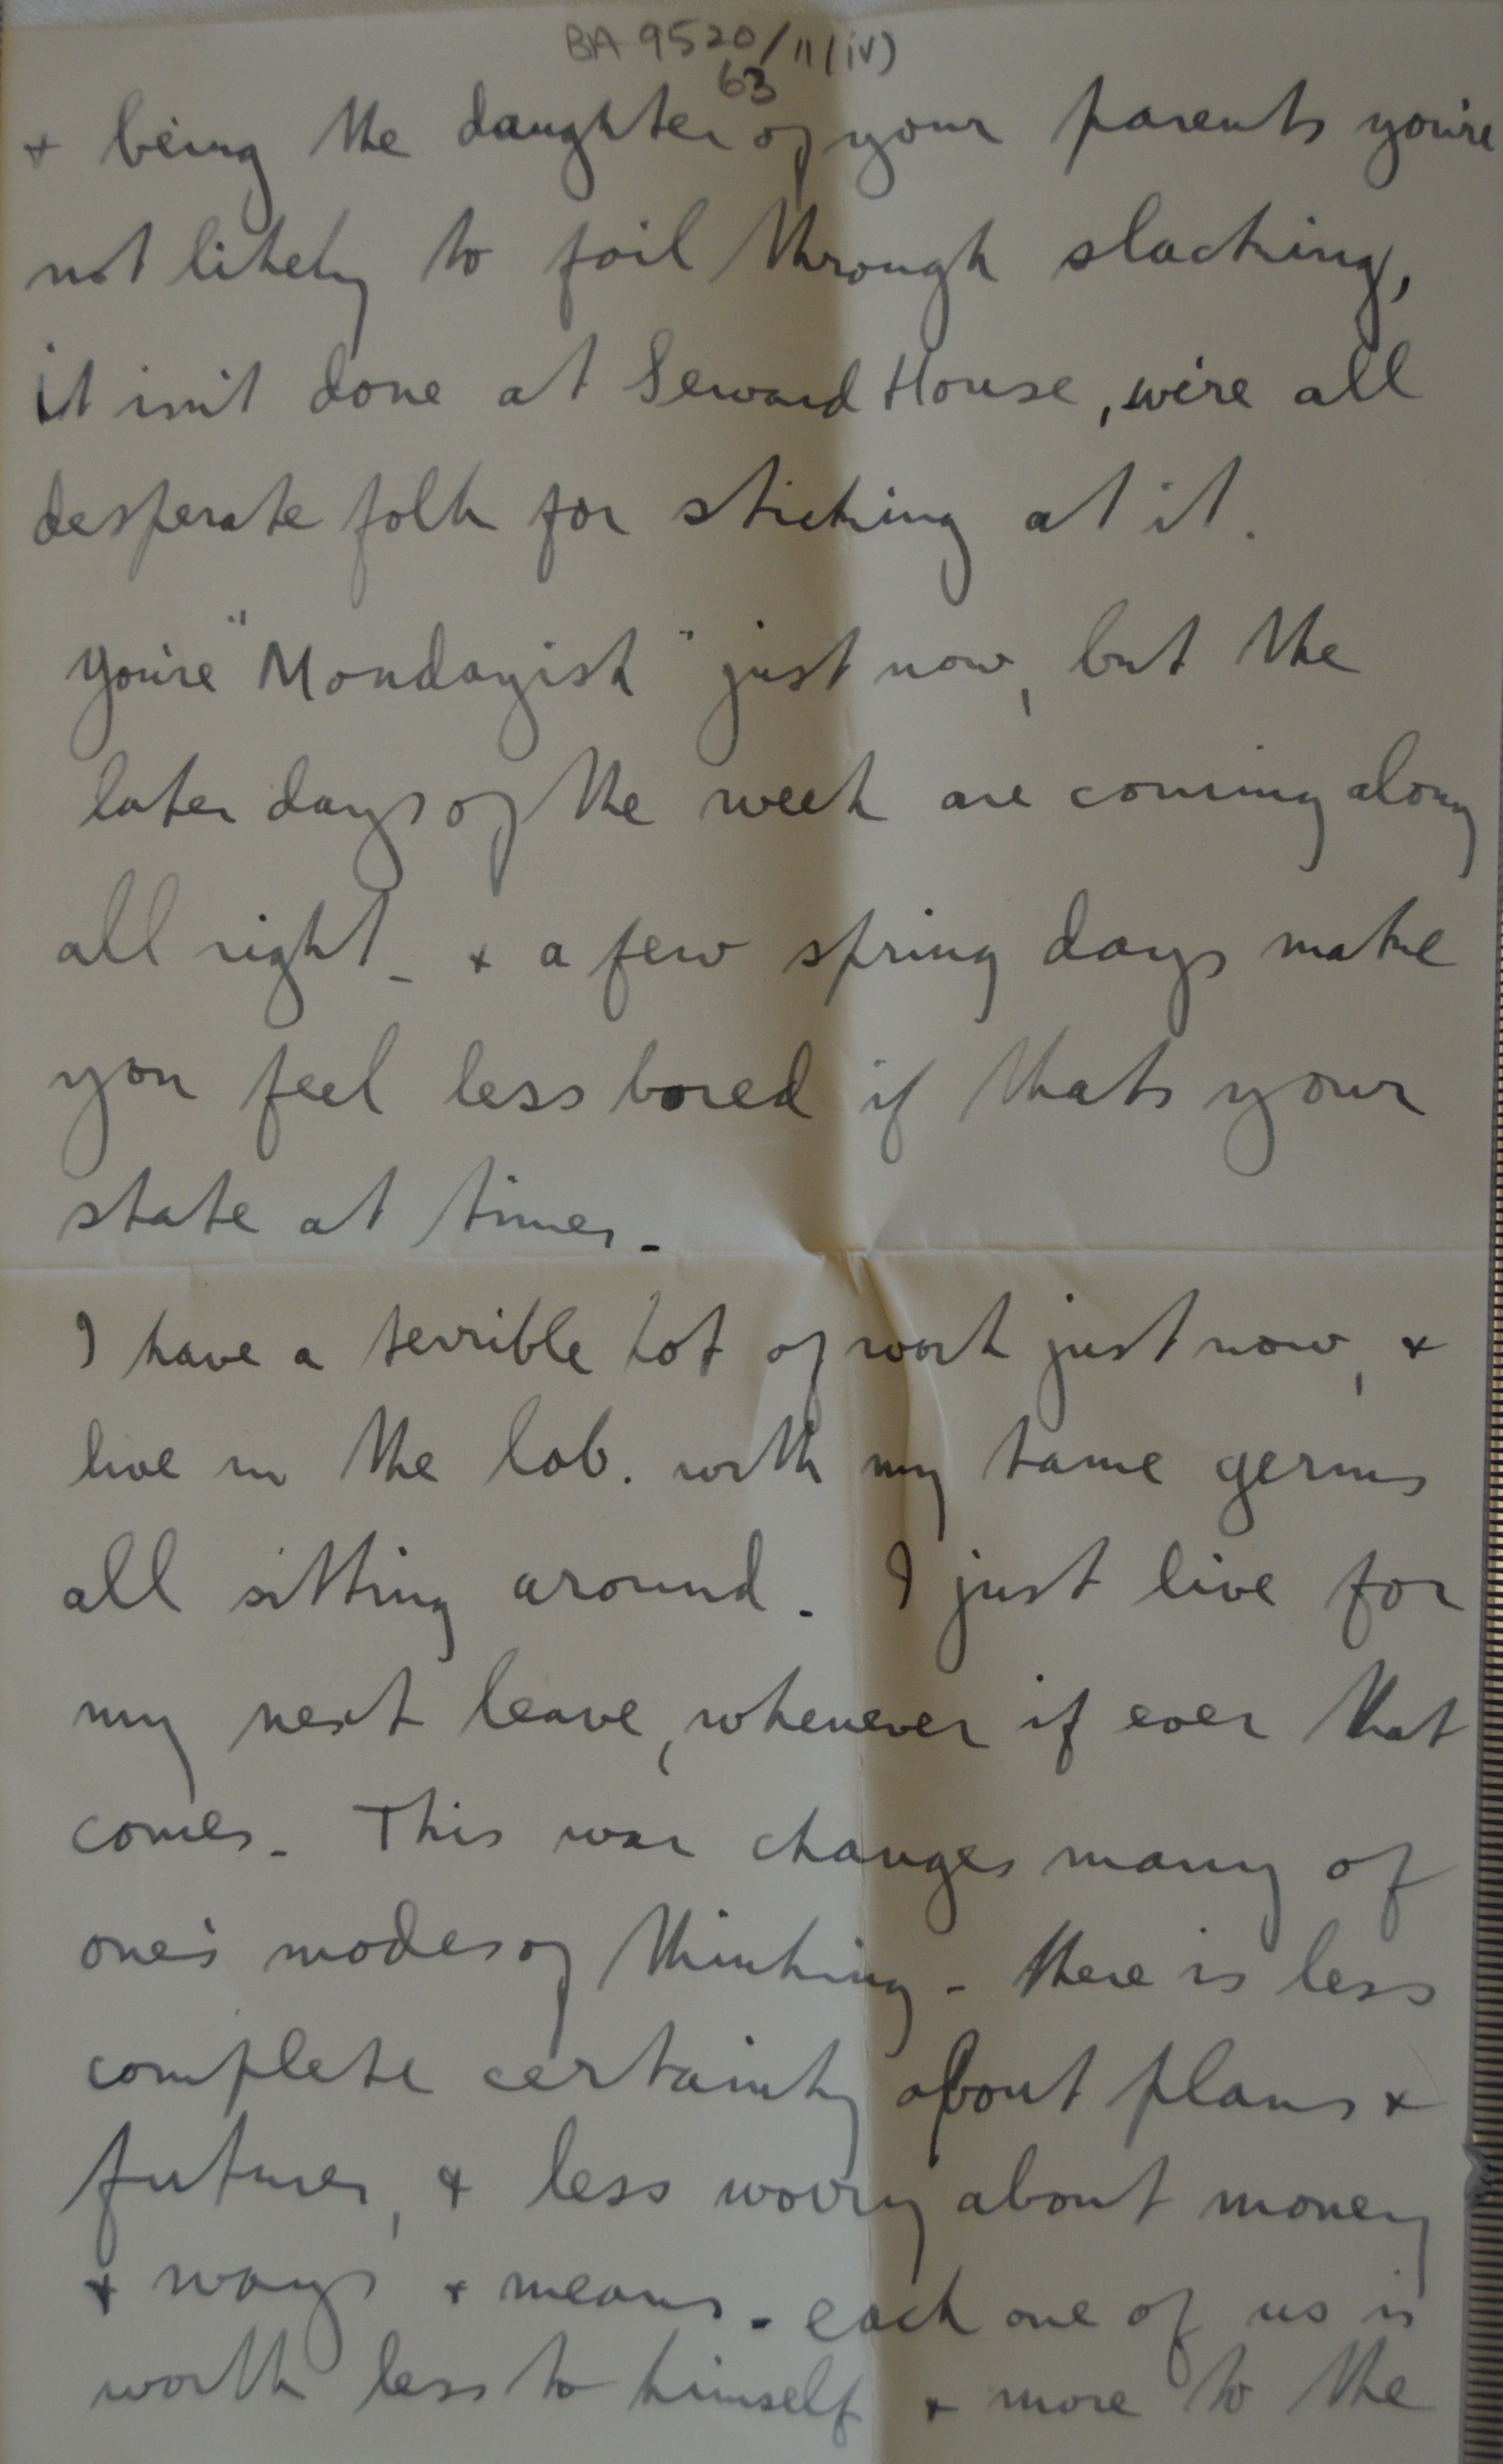 BA 9520/11(iv)
63
& being the daughter of your parents you're
not likely to fail through slacking,
it isn't done at Seward House, we're all
desperate folk for sticking at it.
You're "Mondayish" just now, but the
later days of the week are coming along
all right - & a few spring days make
you feel less bored if thats your
state at times -
I have a terrible lot of work just now, &
live in the lab. with my tame germs
all sitting around. I just live for
my next leave, whenever if ever that
comes - This war changes many of
one's modes of thinking - there is less
complete certainty about plans &
futures, & less worry about money
& ways & means - each one of us is
worth less to himself & more to the